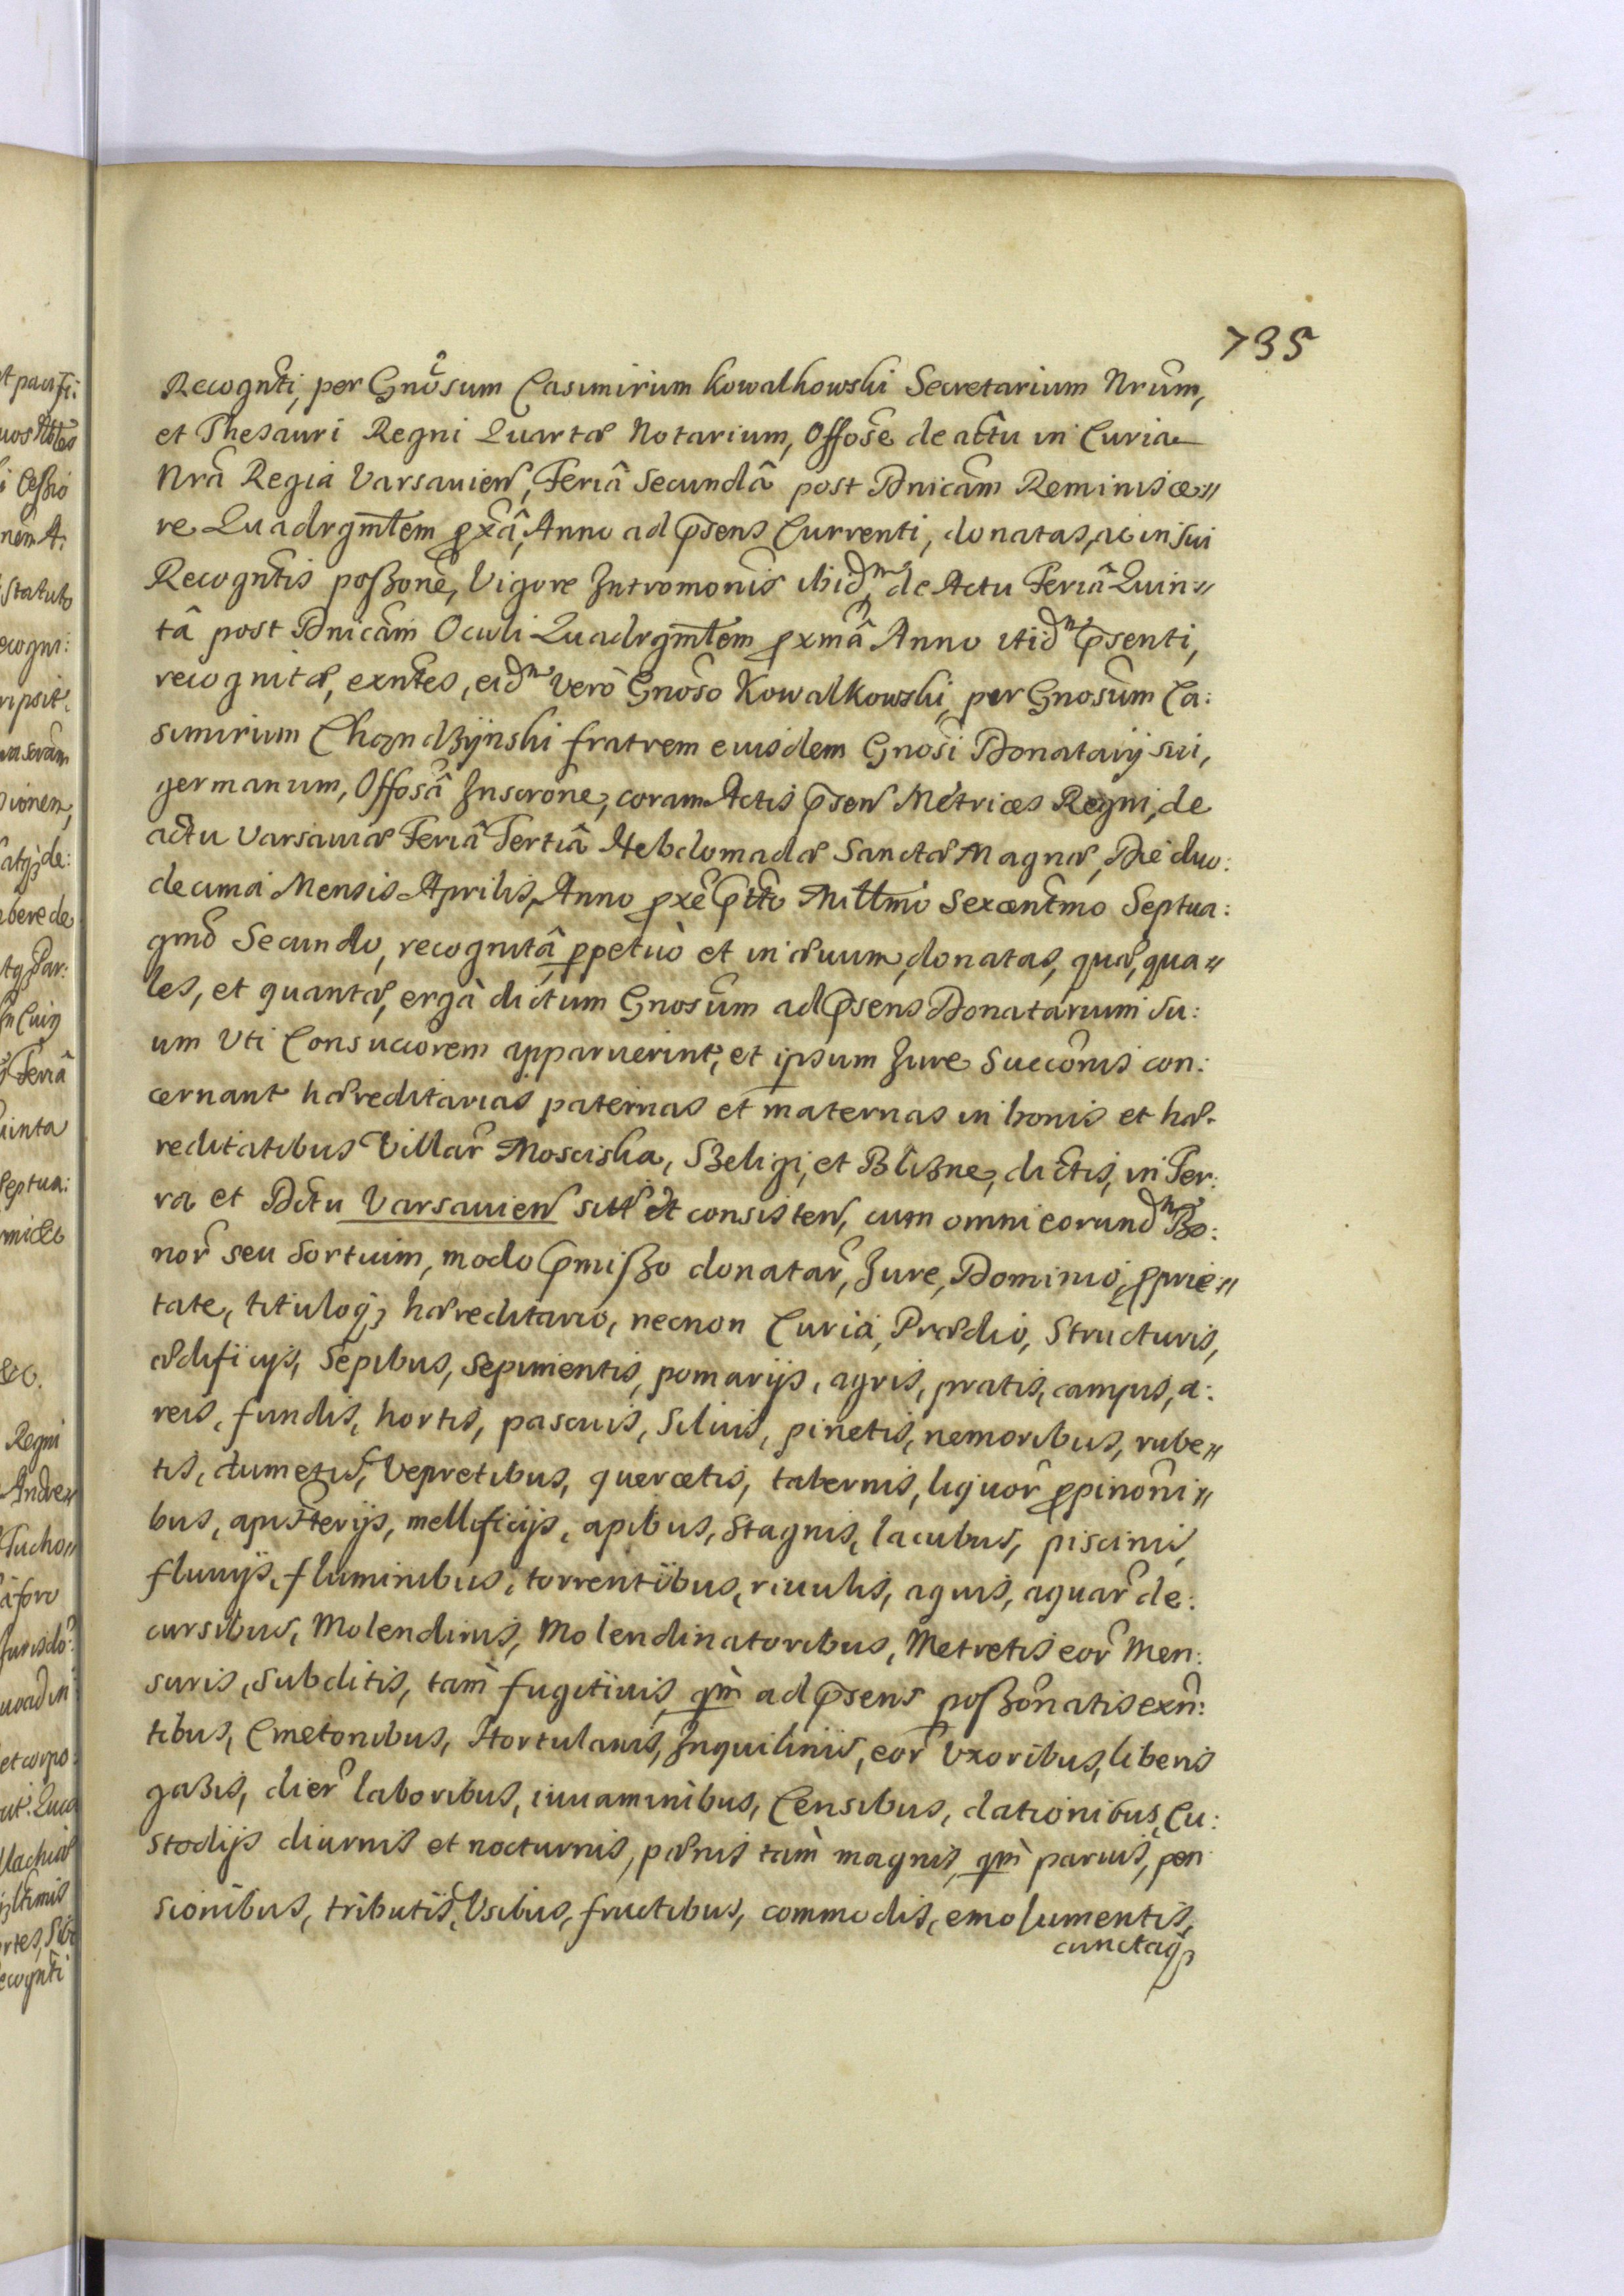 735
Recogn̄ti, per Gnōsum Casimirum Kowalkowski Secretarium Nrūm,
et Thesauri Regni Quartæ Notarium, Offōse de actu in Curia
Nrâ Regia Varsavien, Feriâ Secundâ post Dnicām Reminisce〃
re Quadrgm̄lem p̱xâ, Anno ad p̄sens Currenti, donatas, ac in sui
Recogn̄tis poßonē, Vigore Intromonīs ibidm̄ de Actu Feriâ Quin〃
tâ post Dnicām Oculi Quadrgm̄lem p̱xmâ Anno itidm̄ p̄senti,
recognitæ, exn̄tes, eidm̄ verò Gnōso Kowalkowski, per Gnosūm Ca:
simirium Chondzÿnski fratrem eiusdem Gnosī Donatarÿ sui,
germanum, Offosâ Inscrōne, coram Actis p̄sen Metrices Regni, de
actu Varsaviæ Feriâ Tertiâ Hebdomadæ Sanctæ Magnæ, Die duo:
decima Mensis Aprilis, Anno p̱xē p̄tto Millm̄o Sexcentm̄o Septua:
gmō Secundo, recognitâ, p̱petuò et in ævum, donatas, quæ, qua〃
les, et quantæ, ergà dictum Gnosūm ad p̄sens Donatarium su:
um Uti Consuccorem apparuerint, et ipsum Jure Succonīs con:
cernant hæreditarias paternas et maternas in bonis et hæ.
reditatibus Villar̄ Mosciska, Szeligi, et Blizne, dictis, in Ter:
ra et Dcttu Varsavien sitt et consisten, cum omni eorundm̄ Bo:
nor̄ seu sortium, modo p̄mißo donatar̄, Jure, Dominio, p̱prie〃
tate, tituloq3 hæreditario, necnon Curia, Prædio, Structuris,
ædificÿs, Sepibus, Sepimentis, pomarÿs, agris, pratis, campis, a:
reis, fundis, hortis, pascuis, Silvis, pinetis, nemoribus, rube〃
tis, dumetis, Vepretibus, quercetis, tabernis, liquor̄ p̱pinonī〃
bus, apisterÿs, mellificÿs, apibus, Stagnis, lacubus, piscinis,
fluvÿs, fluminibus, torrentibus, rivulis, aquis, aquar̄ de:
cursibus, Molendinis, Molendinatoribus, Metretis eor̄ Men:
suris, Subditis, tam̀ fugitivis, qm̀ ad p̄sens poßonatis exn̄:
tibus, Cmetonibus, Hortulanis, Inquilinis, eor̄ Uxoribus, liberis
gazis, dier̄ laboribus, iuvaminibus, Censibus, dationibus, Cu:
stodÿs diurnis et nocturnis, pænis tam̀ magnis, qm̀ parvis, pen
sionibus, tributis, Usibus, fructibus, commodis, emolumentis,
cunctaq3